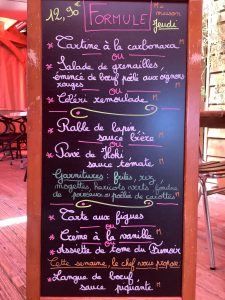 12,90€
FORMULE
Jeudi
* Tartine à la carbonara
ou
* Salade de grenailles,
émincé de bœuf poêlé aux oignons
rouges
ou
* Céleri remoulade
* Rable de lapin
sauce bière
ou
* Pavé de Hoki
sauce tomate
Garnitures : frites, riz
mogettes, haricots verts, fondue
de poireaux
carottes
* Tarte aux figues
ou
* Creme à la vanille
ou
* Assiette de tome du
Cette semaine, le chef vous propose :
* Langue de bœuf
sauce piquante